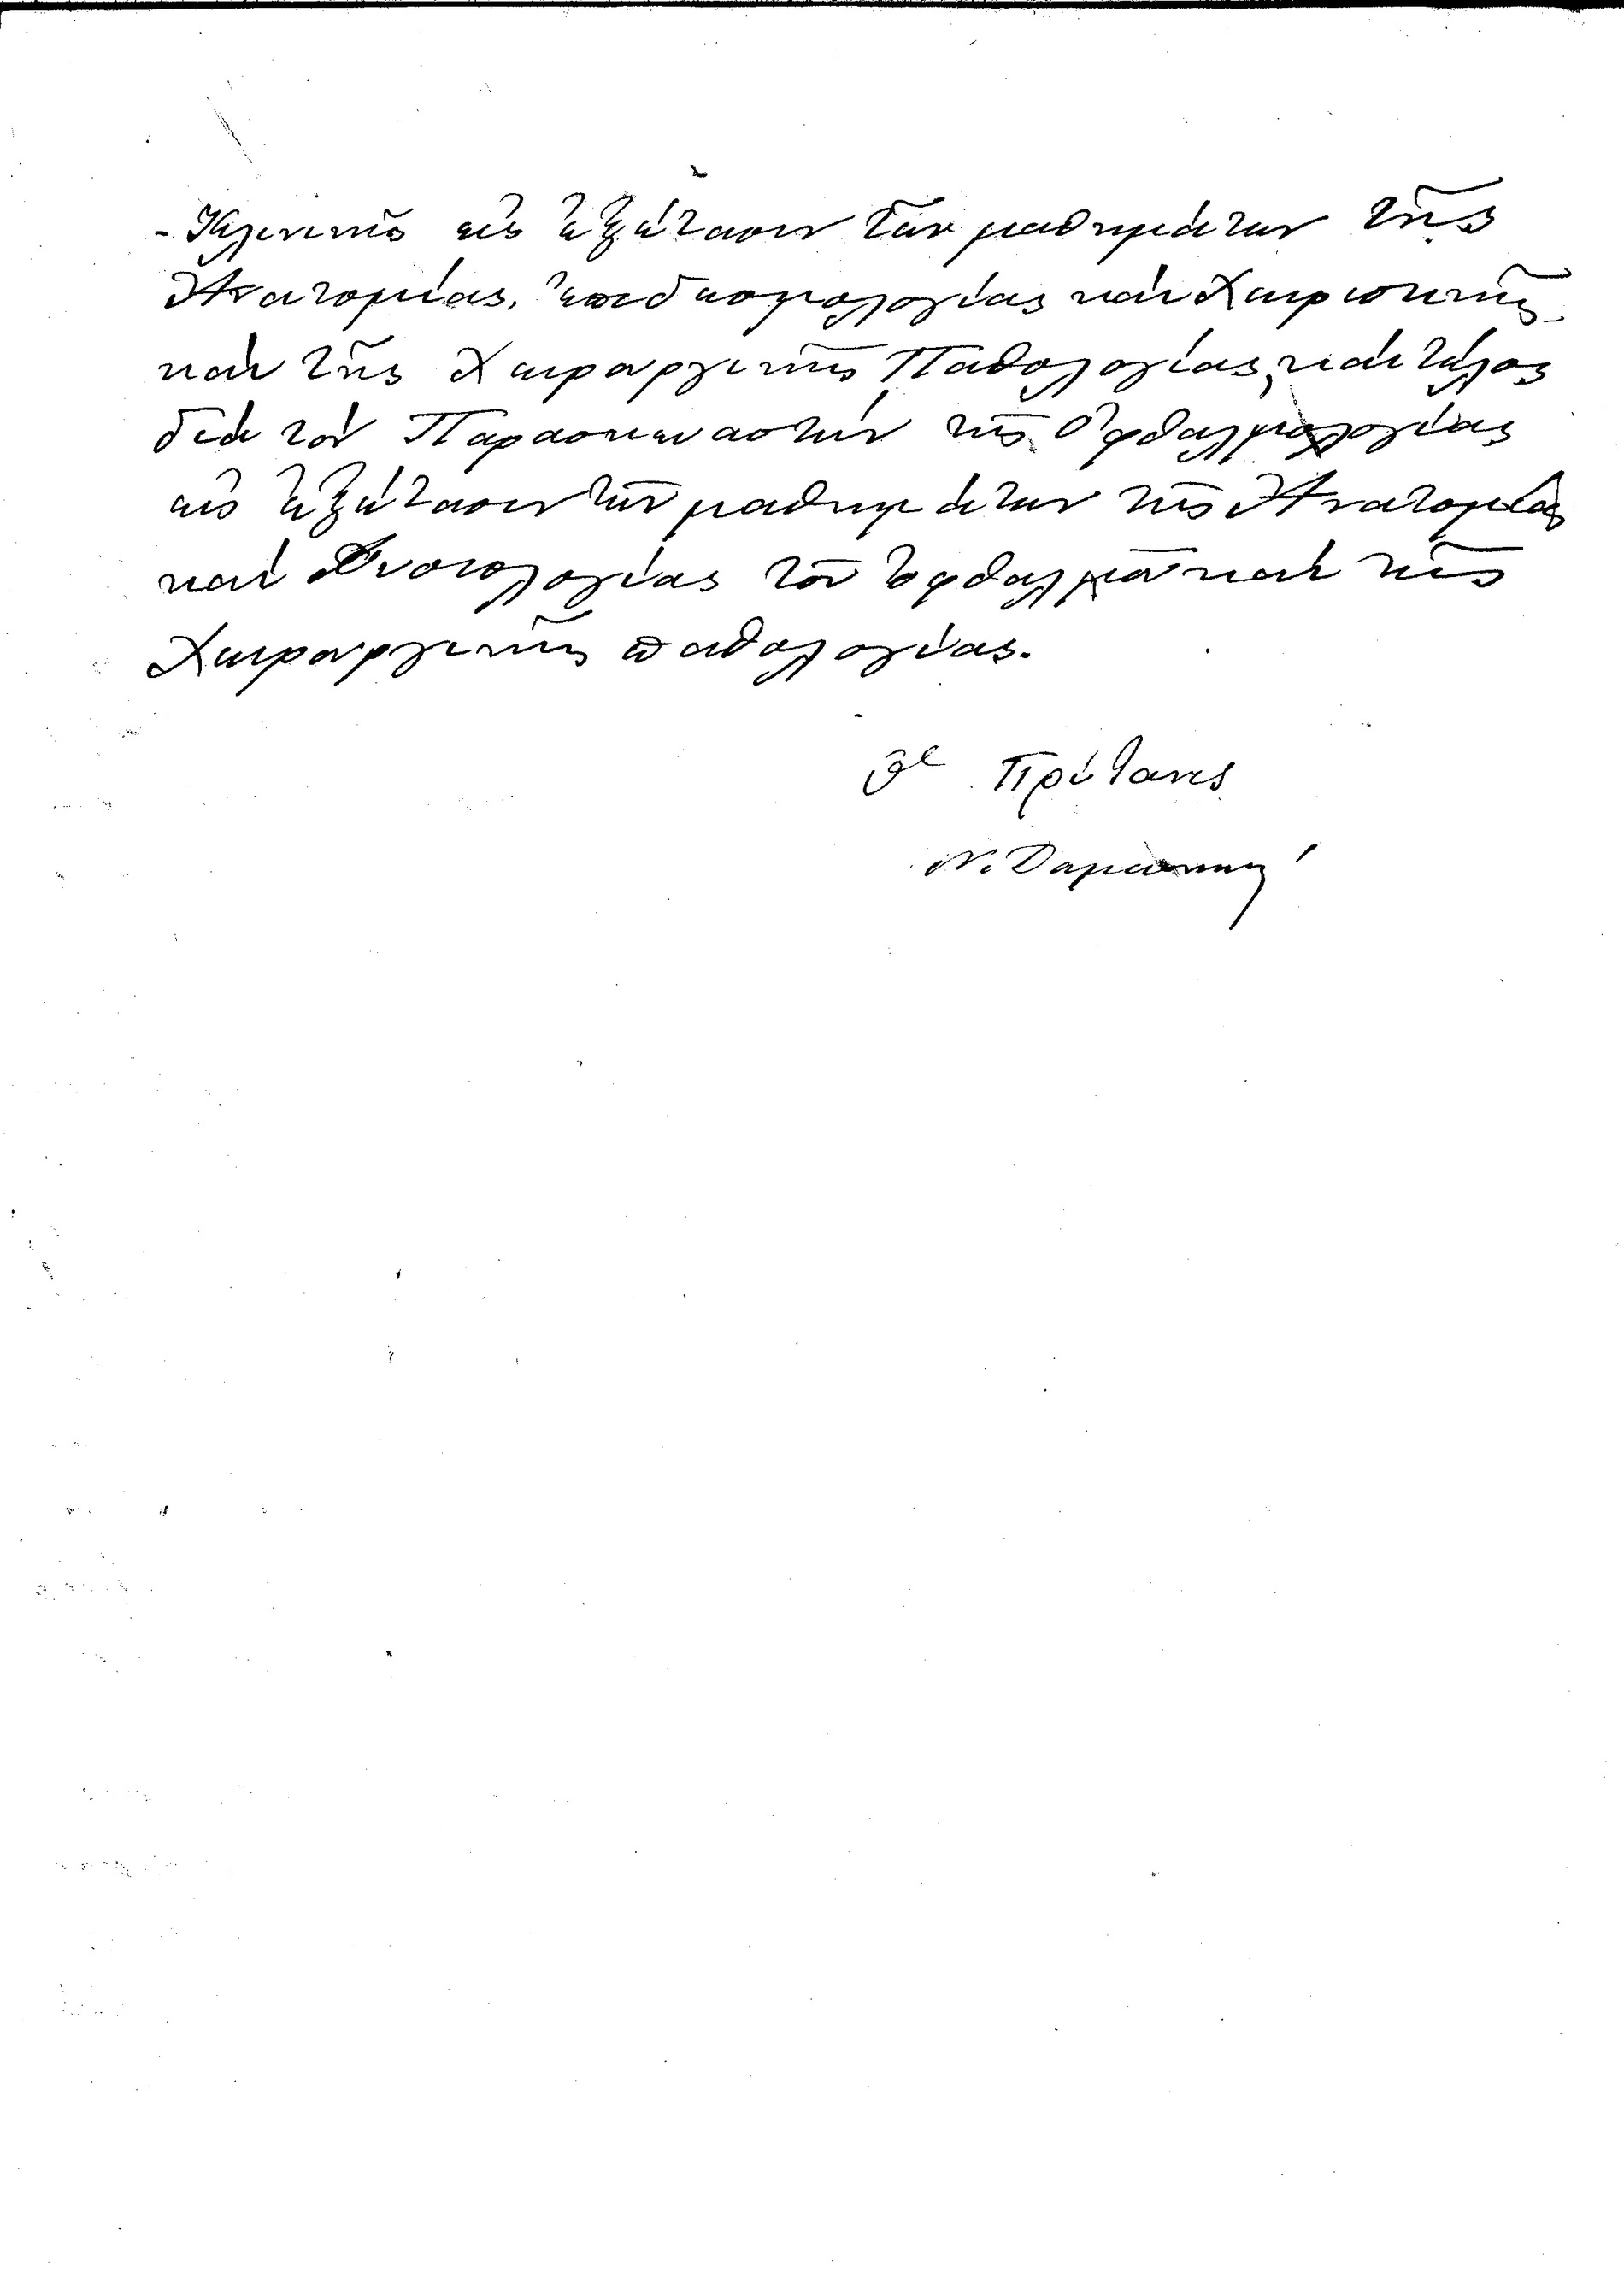 - Κλινικῆς εἰς ἐξέτασιν τῶν μαθημάτων τῆς
Ἀνατομίας, ἐπιδεσμολογίας καὶ Χειριστικῆς
καὶ τῆς Χειρουργικῆς Παθολογίας, καὶ τέλος
διὰ τὸν Παρασκευαστὴν τῆς Ὀφθαλμολογίας
εἰς ἐξέτασιν τῶν μαθημάτων τῆς Ἀνατομίας
καὶ Φυσιολογίας τοῦ ὀφθαλμοῦ καὶ τῆς
Χειρουργικῆς παθολογίας.
Ὁ Πρύτανις
Ν. Δαμασκηνός